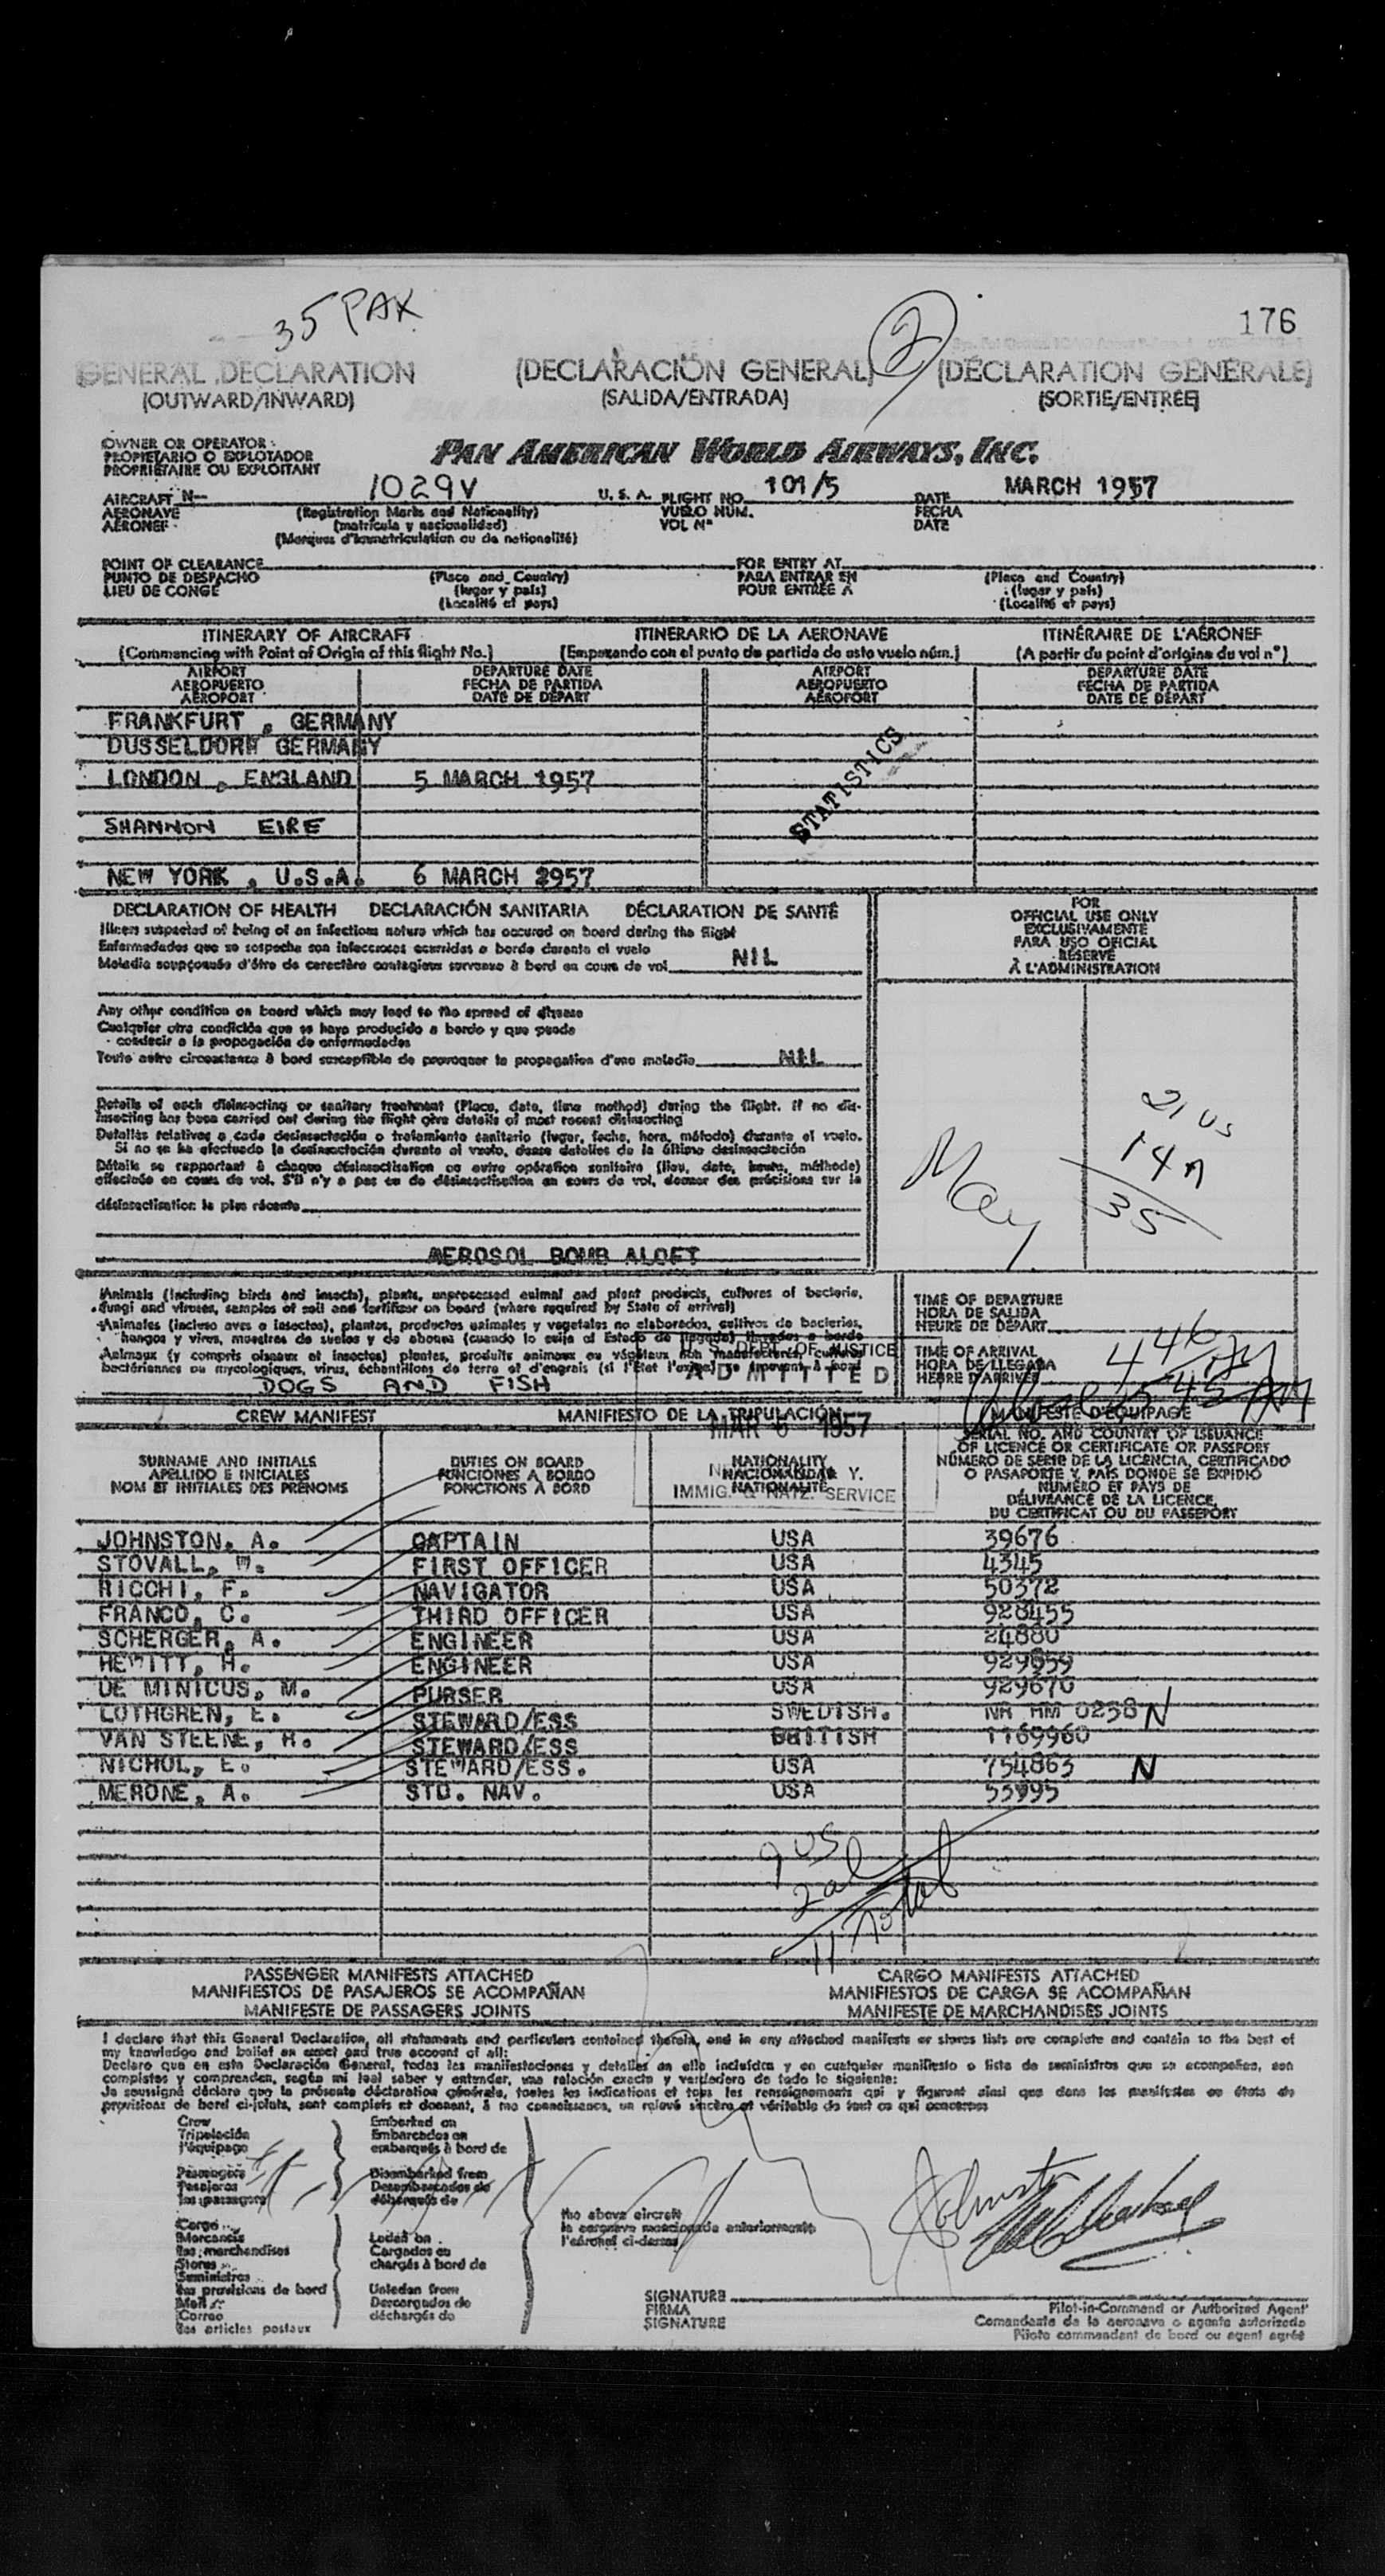 35 PAX
2
176
GENERAL DECLARATION (DECLARACIÓN GENERAL) (DÉCLARATION GÉNÉRALE)
(OUTWARD/INWARD) (SALIDA/ENTRADA) (SORTIE/ENTRÉE)
OWNER OR OPERATOR
PROPIETARIO O EXPLOTADOR
PROPRIÉTAIRE OU EXPLOITANT
PAN AMERICAN WORLD AIRWAYS, INC.
AIRCRAFT N— 1029V U. S. A. FLIGHT NO. 101/5 DATE MARCH 1957
AERONAVE (Registration Marks and Nationality) VUELO NÚM. FECHA
AÉRONEF (matrícula y nacionalidad) VOL Nº DATE
(Marques d'immatriculation ou de nationalité)
POINT OF CLEARANCE FOR ENTRY AT
PUNTO DE DESPACHO (Place and Country) PARA ENTRAR EN (Place and Country)
LIEU DE CONGÉ (lugar y país) POUR ENTRÉE À (lugar y país)
(Localité et pays) (Localité et pays)
ITINERARY OF AIRCRAFT ITINERARIO DE LA AERONAVE ITINÉRAIRE DE L'AÉRONEF
(Commencing with Point of Origin of this flight No.) (Empezando con el punto de partida de este vuelo núm.) (A partir du point d'origine du vol nº)
AIRPORT DEPARTURE DATE AIRPORT DEPARTURE DATE
AEROPUERTO FECHA DE PARTIDA AEROPUERTO FECHA DE PARTIDA
AÉROPORT DATE DE DÉPART AÉROPORT DATE DE DÉPART
FRANKFURT , GERMANY
DUSSELDORH GERMANY
LONDON , ENGLAND 5 MARCH 1957
STATISTICS
SHANNON EIRE
NEW YORK , U.S.A. 6 MARCH 2957
DECLARATION OF HEALTH DECLARACIÓN SANITARIA DÉCLARATION DE SANTÉ
Illness suspected of being of an infectious nature which has occured on board during the flight
Enfermedades que se sospecha son infecciosas ocurridas a bordo durante el vuelo
Maladie soupçonnée d'être de caractère contagieux survenue à bord en cours de vol NIL
FOR
OFFICIAL USE ONLY
EXCLUSIVAMENTE
PARA USO OFICIAL
RÉSERVÉ
À L'ADMINISTRATION
Any other condition on board which may lead to the spread of disease
Cualquier otra condición que se haya producido a bordo y que puede
conducir a la propagación de enfermedades
Toute autre circonstance à bord susceptible de provoquer la propagation d'une maladie NIL
Details of each disinsecting or sanitary treatment (Place, date, time method) during the flight. If no dis-
insecting has been carried out during the flight give details of most recent disinsecting
Detalles relativos a cada desinsectación o tratamiento sanitario (lugar, fecha, hora, método) durante el vuelo.
Si no se ha efectuado la desinsectación durante el vuelo, dense detalles de la última desinsectación
Détails se rapportant à chaque désinsectisation ou autre opération sanitaire (lieu, date, heure, méthode)
effectuée en cours de vol. S'il n'y a pas eu de désinsectisation en cours de vol, donner des précisions sur la
désinsectisation la plus récente
AEROSOL BOMB ALOFT
May
21 US
14 A
35
Animals (including birds and insects), plants, unprocessed animal and plant products, cultures of bacteria,
fungi and viruses, samples of soil and fertilizer on board (where required by State of arrival)
Animales (incluso aves e insectos), plantas, productos animales y vegetales no elaborados, cultivos de bacterias,
hongos y virus, muestras de suelos y de abonos (cuando lo exija el Estado de llegada) llevados a bordo
Animaux (y compris oiseaux et insectes) plantes, produits animaux ou végétaux non manufacturés, cultures
bactériennes ou mycologiques, virus, échantillons de terre et d'engrais (si l'État l'exige) se trouvant à bord
DOGS AND FISH
TIME OF DEPARTURE
HORA DE SALIDA
HEURE DE DÉPART
TIME OF ARRIVAL
HORA DE LLEGADA
HEURE D'ARRIVÉE
446
545 AM
U. S. DEPT. OF JUSTICE
ADMITTED
MAR 6 1957
IMMIG. & NATZ. SERVICE
CREW MANIFEST MANIFIESTO DE LA TRIPULACIÓN MANIFESTE D'ÉQUIPAGE
SURNAME AND INITIALS
APELLIDO E INICIALES
NOM ET INITIALES DES PRÉNOMS
DUTIES ON BOARD
FUNCIONES A BORDO
FONCTIONS À BORD
NATIONALITY
NACIONALIDAD
NATIONALITÉ
SERIAL NO. AND COUNTRY OF ISSUANCE
OF LICENCE OR CERTIFICATE OR PASSPORT
NÚMERO DE SERIE DE LA LICENCIA, CERTIFICADO
O PASAPORTE Y PAÍS DONDE SE EXPIDIÓ
NUMÉRO ET PAYS DE
DÉLIVRANCE DE LA LICENCE,
DU CERTIFICAT OU DU PASSEPORT
JOHNSTON, A. CAPTAIN USA 39676
STOVALL, W. FIRST OFFICER USA 4345
RICCHI, F. NAVIGATOR USA 50372
FRANCO, C. THIRD OFFICER USA 928455
SCHERGER, A. ENGINEER USA 24880
HEWITT, H. ENGINEER USA 929859
DE MINICUS, M. PURSER USA 929670
LOTHGREN, E. STEWARD/ESS SWEDISH. NR HM 0238 N
VAN STEENE, H. STEWARD/ESS BRITISH 1169960
NICHOL, E. STEWARD/ESS. USA 754863 N
MERONE, A. STD. NAV. USA 55995
9 US
2 al
11 Total
PASSENGER MANIFESTS ATTACHED CARGO MANIFESTS ATTACHED
MANIFIESTOS DE PASAJEROS SE ACOMPAÑAN MANIFIESTOS DE CARGA SE ACOMPAÑAN
MANIFESTE DE PASSAGERS JOINTS MANIFESTE DE MARCHANDISES JOINTS
I declare that this General Declaration, all statements and particulars contained therein, and in any attached manifests or stores lists are complete and contain to the best of
my knowledge and belief an exact and true account of all:
Declaro que en esta Declaración General, todas las manifestaciones y detalles en ella incluídos y en cualquier manifiesto o lista de suministros que se acompañen, son
completos y comprenden, según mi leal saber y entender, una relación exacta y verdadera de todo lo siguiente:
Je soussigné déclare que la présente déclaration générale, toutes les indications et tous les renseignements qui y figurent ainsi que dans les manifestes ou états de
provisions de bord ci-joints, sont complets et donnent, à ma connaissance, un relevé sincère et véritable de tout ce qui concerne
Crew
Tripulación
l'équipage
Passengers
Pasajeros
les passagers
Cargo
Mercancía
les marchandises
Stores
Suministros
les provisions de bord
Mail
Correo
les articles postaux
Embarked on
Embarcados en
embarqués à bord de
Disembarked from
Desembarcados de
débarqués de
Laded on
Cargados en
chargés à bord de
Unladen from
Descargados de
déchargés de
the above aircraft
la aeronave mencionada anteriormente
l'aéronef ci-dessus
SIGNATURE
FIRMA
SIGNATURE
Pilot-in-Command or Authorized Agent
Comandante de la aeronave o agente autorizado
Pilote commandant de bord ou agent agréé